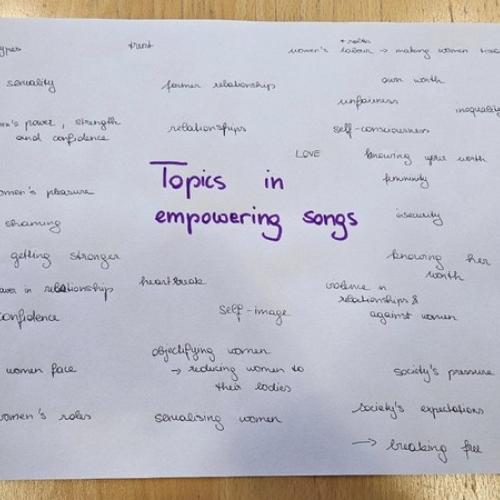 ypes
trust
+ roles
women's labour → making women
own worth
sexuality
former relationships
unfairness
inequality
en's power, strength
and confidence
relationships
self-consciousness
LOVE
knowing your worth
femininity
Topics in
empowering songs
omen's pleasure
shaming
insecurity
getting stronger
knowing her
worth
ower in relationship
heartbreak
violence in
relationships &
against women
confidence
self-image
objectifying women
→ reducing women to
their bodies
women face
society's pressure
women's roles
sexualising women
society's expectations
→ breaking free